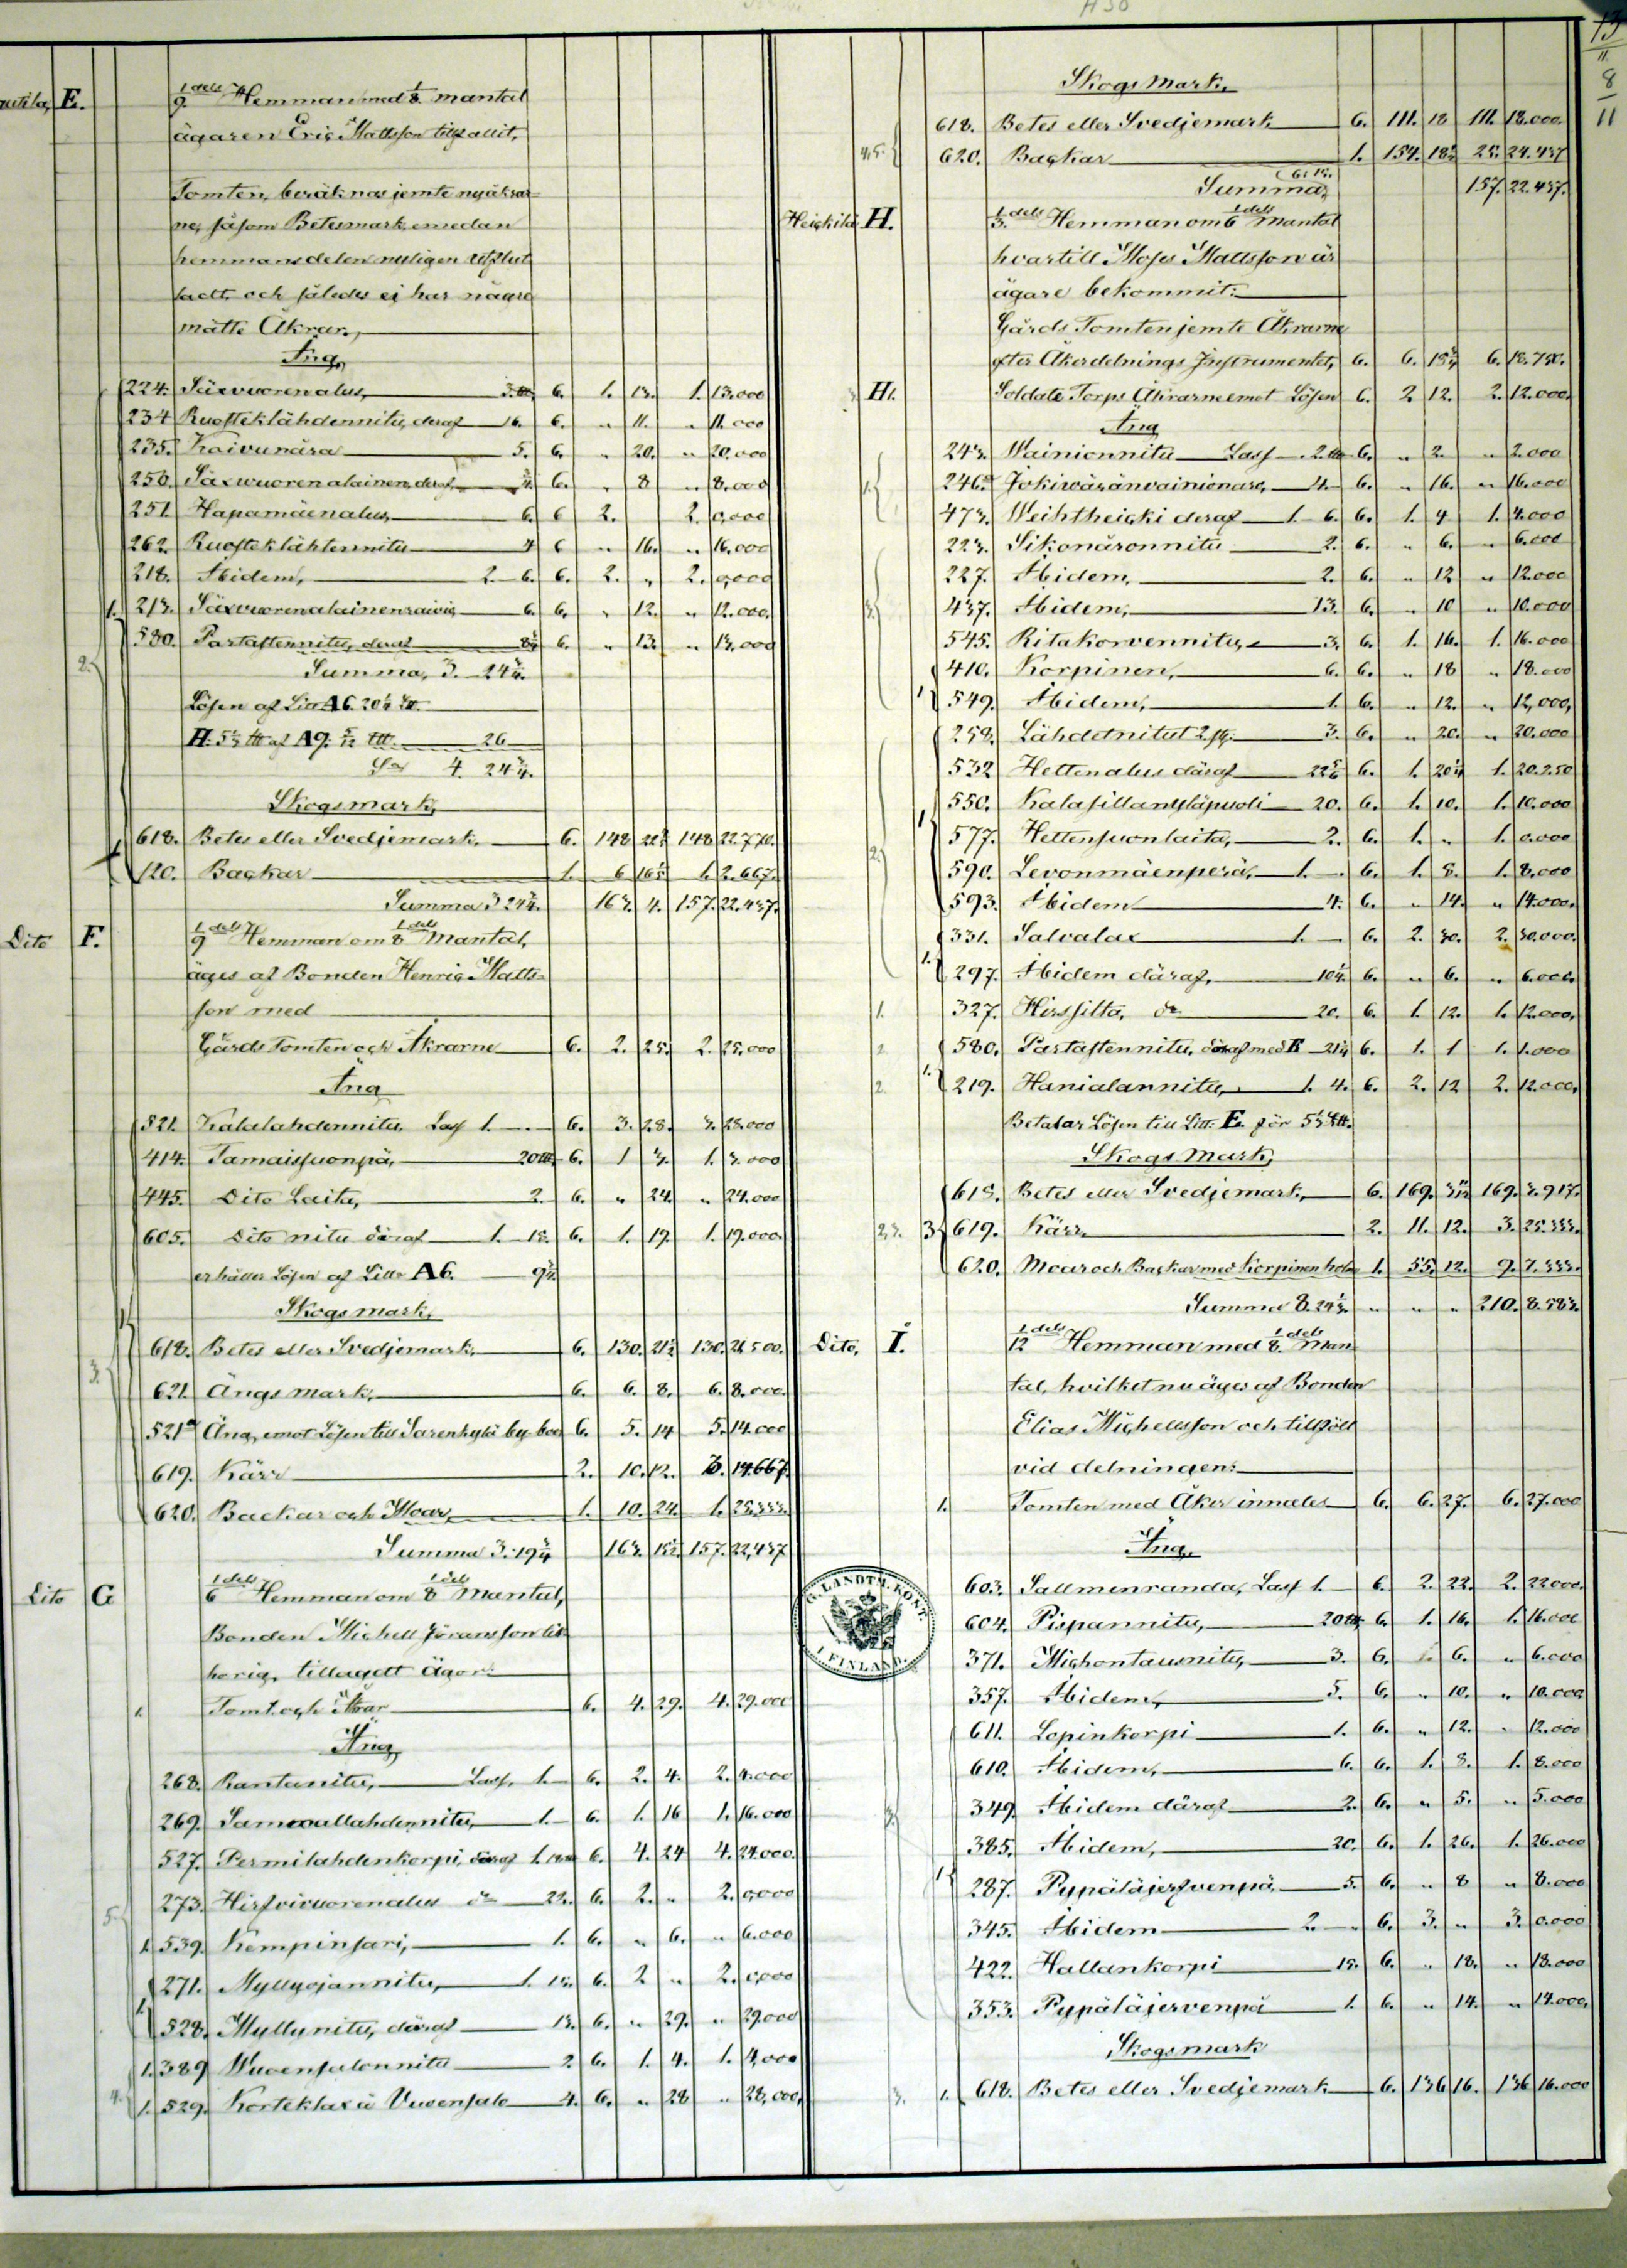 13
11
8
11
E.
1/9 dels Hemman med 1/8 mantal
ägaren Eric Mattsson tillfallit,
Tomten, beräknas jemte nyåkrar=
ne, såsom Betesmark, emedan
hemmansdelen nyligen utflut
tadt och således ej har någre
mätte Åkrar.
Äng,
224. 6. 1. 13. 1. 13.000
234 deraf 16. 6. „ 11. „ 11.000
235. Kaivunära 5. 6. „ 20. „ 20.000
250. deraf 6. „ 8 „ 8.000
251. Hapamäenalus, 6. 6 2. 2. 0,000
262. 4 6 „ 16. „ 16.000
218. Ibidem, 2. 6. 6. 2. „ 2. 0,000
1. 213. 6. 6. „ 12. „ 12.000.
580. Partastennitu, deraf 6. „ 13. „ 13,000
2. Summa, 3. 24 3/4.
Lösen af
26
4. 24 3/4.
Skogsmark,
618. Betes eller Svedjemark. 6. 148 148 22.770.
120. Backar 1. 6
Summa 3 24 3/4. 163. 4. 157. 22.437.
Dito F.
1/9 dels Hemman om 1/8 dels Mantal,
äges af Bonden Henric Matts=
son med
Gårds Tomten och Åkrarne 6. 2. 25. 2. 25,000
Äng
521. Kalalahdennitu, Lass 1. 6. 3. 28. 3. 28.000
414. 20 6. 1 3. 1. 3.000
445. Dito Laitu, 2. 6. „ 24. „ 24.000
605. Dito nitu däraf 1. 18. 6. 1. 19. 1. 19.000.
erhåller Lösen af Littr A6. 9 3/4.
Skogsmark,
618. Betes eller Svedjemark, 6. 130. 21 1/2 130. 21.500.
3. 621. Ängs mark, 6. 6. 8. 6. 8.000.
521 Äng, emot Lösen till Sarenkylä by 6. 5. 14 5. 14.000
619. Kärr 2. 10. 12. 3. 14.667.
620. Backar och Moar, 1. 10. 24. 1. 25.333.
Summa 3. 19 3/4 163. 157. 22,437
Dito G
1/6 dels Hemman om 1/8 dels Mantal,
Bonden Michell Jöransson till
hörig, tillagdt ägor:
1. Tomt och Åkrar 6. 4. 29. 4. 29.000
Äng,
268. Rantanitu, Lass 1. 6. 2. 4. 2. 4.000
269. 1. 6. 1. 16 1. 16.000
527. Permilahdenkorpi, däraf 6. 4. 24 4. 24.000.
273. 22. 6. 2. „ 2. 0,000
5. 1. 539. Kempinsari, 1. 6. „ 6. „ 6.000
271. Myllyojannitu, 1. 15. 6. 2 „ 2. 0,000
1. 528. Myllynitu, däraf 13. 6. „ 29. „ 29.000
1. 389 Wuoensalonnitu 2. 6. 1. 4. 1. 4,000
4. 1. 529. Korteklax å Vuoensalo 4. 6. „ 28 „ 28,000,
Skogs mark,
618. Betes eller Svedjemark 6. 111. 18 111. 18.000.
4.5. 620. Backar 1. 154. 25. 24.437
Summa, 157. 22.437.
Heickilä H.
1/3 dels Hemman om 1/6 dels Mantal
hvartill Moses Mattsson är
ägare bekommit:
Gårds Tomten jemte Åkrarne
efter Åkerdelnings Instrumentet, 6. 6. 18 3/4 6. 18.750.
H1. Soldate Torps Åkrarne emot Lösen 6. 2. 12. 2. 12.000.
Äng
243. Wainionnitu Lass 2. 6. „ 2. „ 2.000
1. 246. 4. 6. „ 16. „ 16.000
473. Weihtheicki deraf 1. 6. 6. 1. 4 1. 4.000
223. Sikonäronnitu 2. 6. „ 6. „ 6.000
227. Ibidem, 2. 6. „ 12 „ 12.000
3. 437. Ibidem, 13. 6. „ 10 „ 10.000
545. Ritakorvennitu, 3. 6. 1. 16. 1. 16.000
410. Korpinen, 6. 6. „ 18 „ 18.000
1 549. Ibidem, 1. 6. „ 12. „ 12,000,
258. Lähdetnitut 2. 3. 6. „ 20. „ 20.000
532 Hettenalus däraf 22 5/6 6. 1. 20 1/4 1. 20.250
550. 20. 6. 1. 10. 1. 10.000
1 577. Hettensuonlaita, 2. 6. 1. „ 1. 0.000
2. 590. Levonmäenperä, 1. 6. 1. 8. 1. 8,000
593. Ibidem 4. 6. „ 14. „ 14.000.
331. Salvalax 1. 6. 2. 30. 2. 30.000.
1. 297. Ibidem däraf, 6. „ 6. „ 6.000.
1. 327. Hirssilta, do 20. 6. 1. 12. 1. 12.000,
2. 580. Partastennitu, däraf med E 21 1/4 6. 1. 1 1. 1.000
2. 1. 219. Hanialannitu, 1. 4. 6. 2. 12 2. 12.000,
Betalar Lösen till Litt. E. för
Skogs Mark,
618. Betes eller Svedjemark, 6. 169. 169. 3.917.
2,3. 3 619. Kärr, 2. 11. 12. 3. 25.333.
620. Moar och Backar med Korpinen holm 1. 55. 12. 9. 7.333.
Summa 8. „ „ „ 210. 8.583.
Dito, I.
1/12 dels Hemman med 1/8 dels Man=
tal, hvilket nu äges af Bonden
Elias Michellsson och tillföll
vid delningen:
1. Tomten med Åker innales 6. 6. 27. 6. 27.000
Äng,
603. Sallmenranda, Lass 1. 6. 2. 22. 2. 22000.
604. Pispannitu, 20 6. 1. 16. 1. 16.000
371. 3. 6. 6. „ 6.000
357. Ibidem, 5. 6. „ 10. „ 10.000
611. Lopinkorpi 1. 6. „ 12. „ 12.000
610. Ibidem, 6. 6. 1. 8. 1. 8.000
3. 349. Ibidem däraf 2. 6. „ 5. „ 5.000
385. Ibidem, 20. 6. 1. 26. 1. 26.000
1 287. Pypäläjerfvenpä 5. 6. „ 8 „ 8.000
345. Ibidem 2. 6. 3. „ 3. 0.000
422. Hallankorpi 15. 6. „ 18. „ 18.000
353. Pypäläjervenpä 1. 6. „ 14. „ 14.000,
Skogsmark
3. 1. 618. Betes eller Svedjemark 6. 136 16. 136 16.000
G. LANDTM. KONT. I FINLAND.